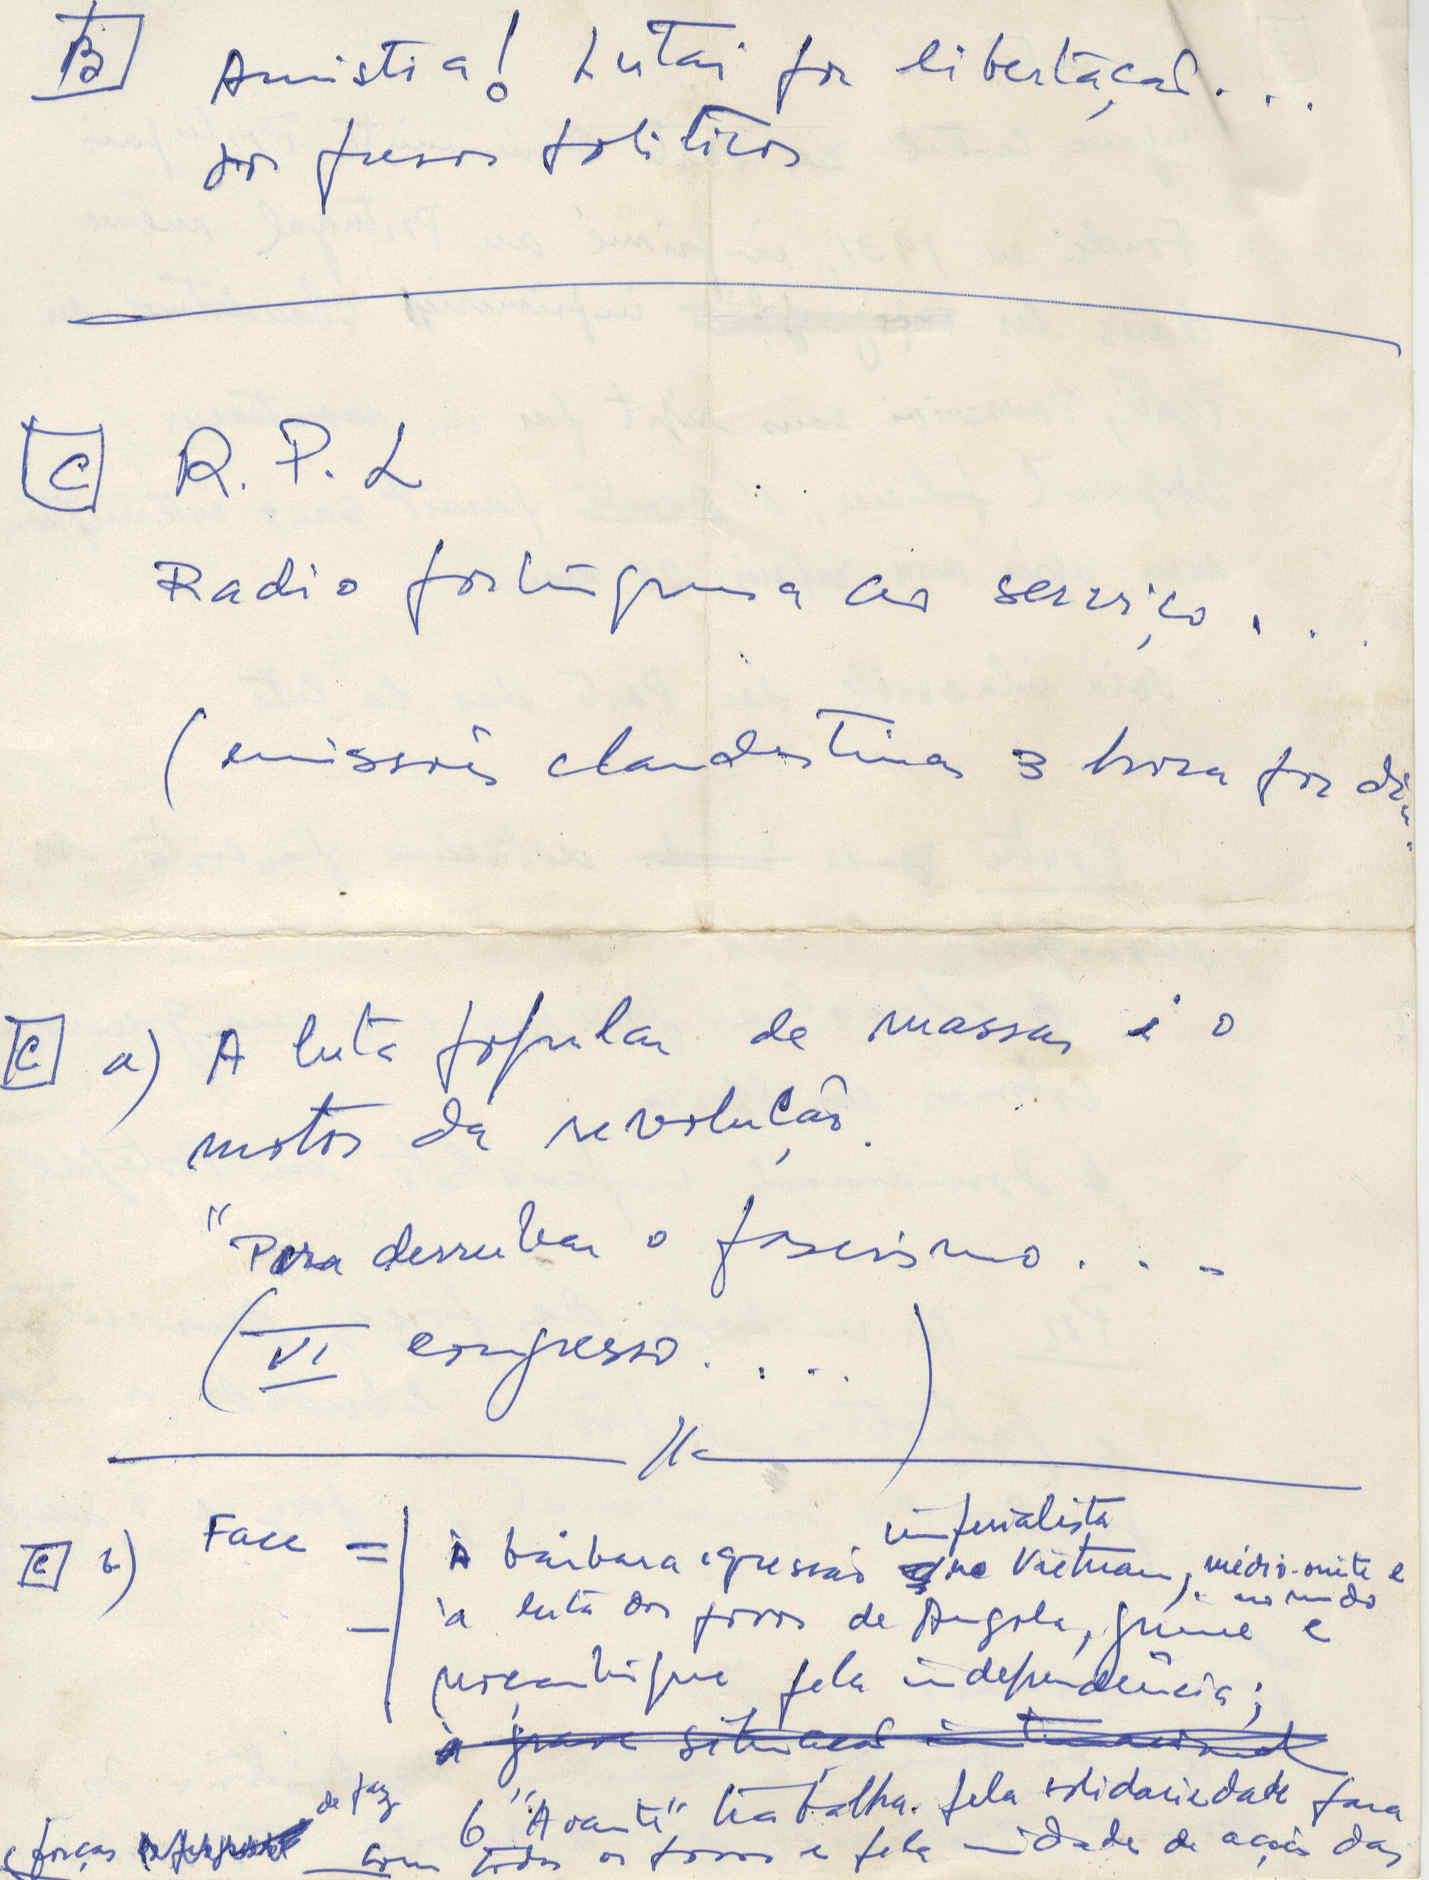 B Amnistia! Lutai por libertação...
dos presos politicos
C R.P.L
Radio portuguesa ao serviço...
(emissões clandestinas 3 hora por dia.
C a) A luta popular de massas é o
motor da revolução.
"Para derrubar o fascismo...
(VI congresso....)
imperialista
C b) Face = À bárbara agressão no Vietnam, médio-oriente e
no mundo
— à luta dos povos de Angola, guiné e
moçambique pela independência;
à grave situação internacional
O "Avante" trabalha pela solidariedade para
de paz
com todos os povos e pela unidade de acção das
forças